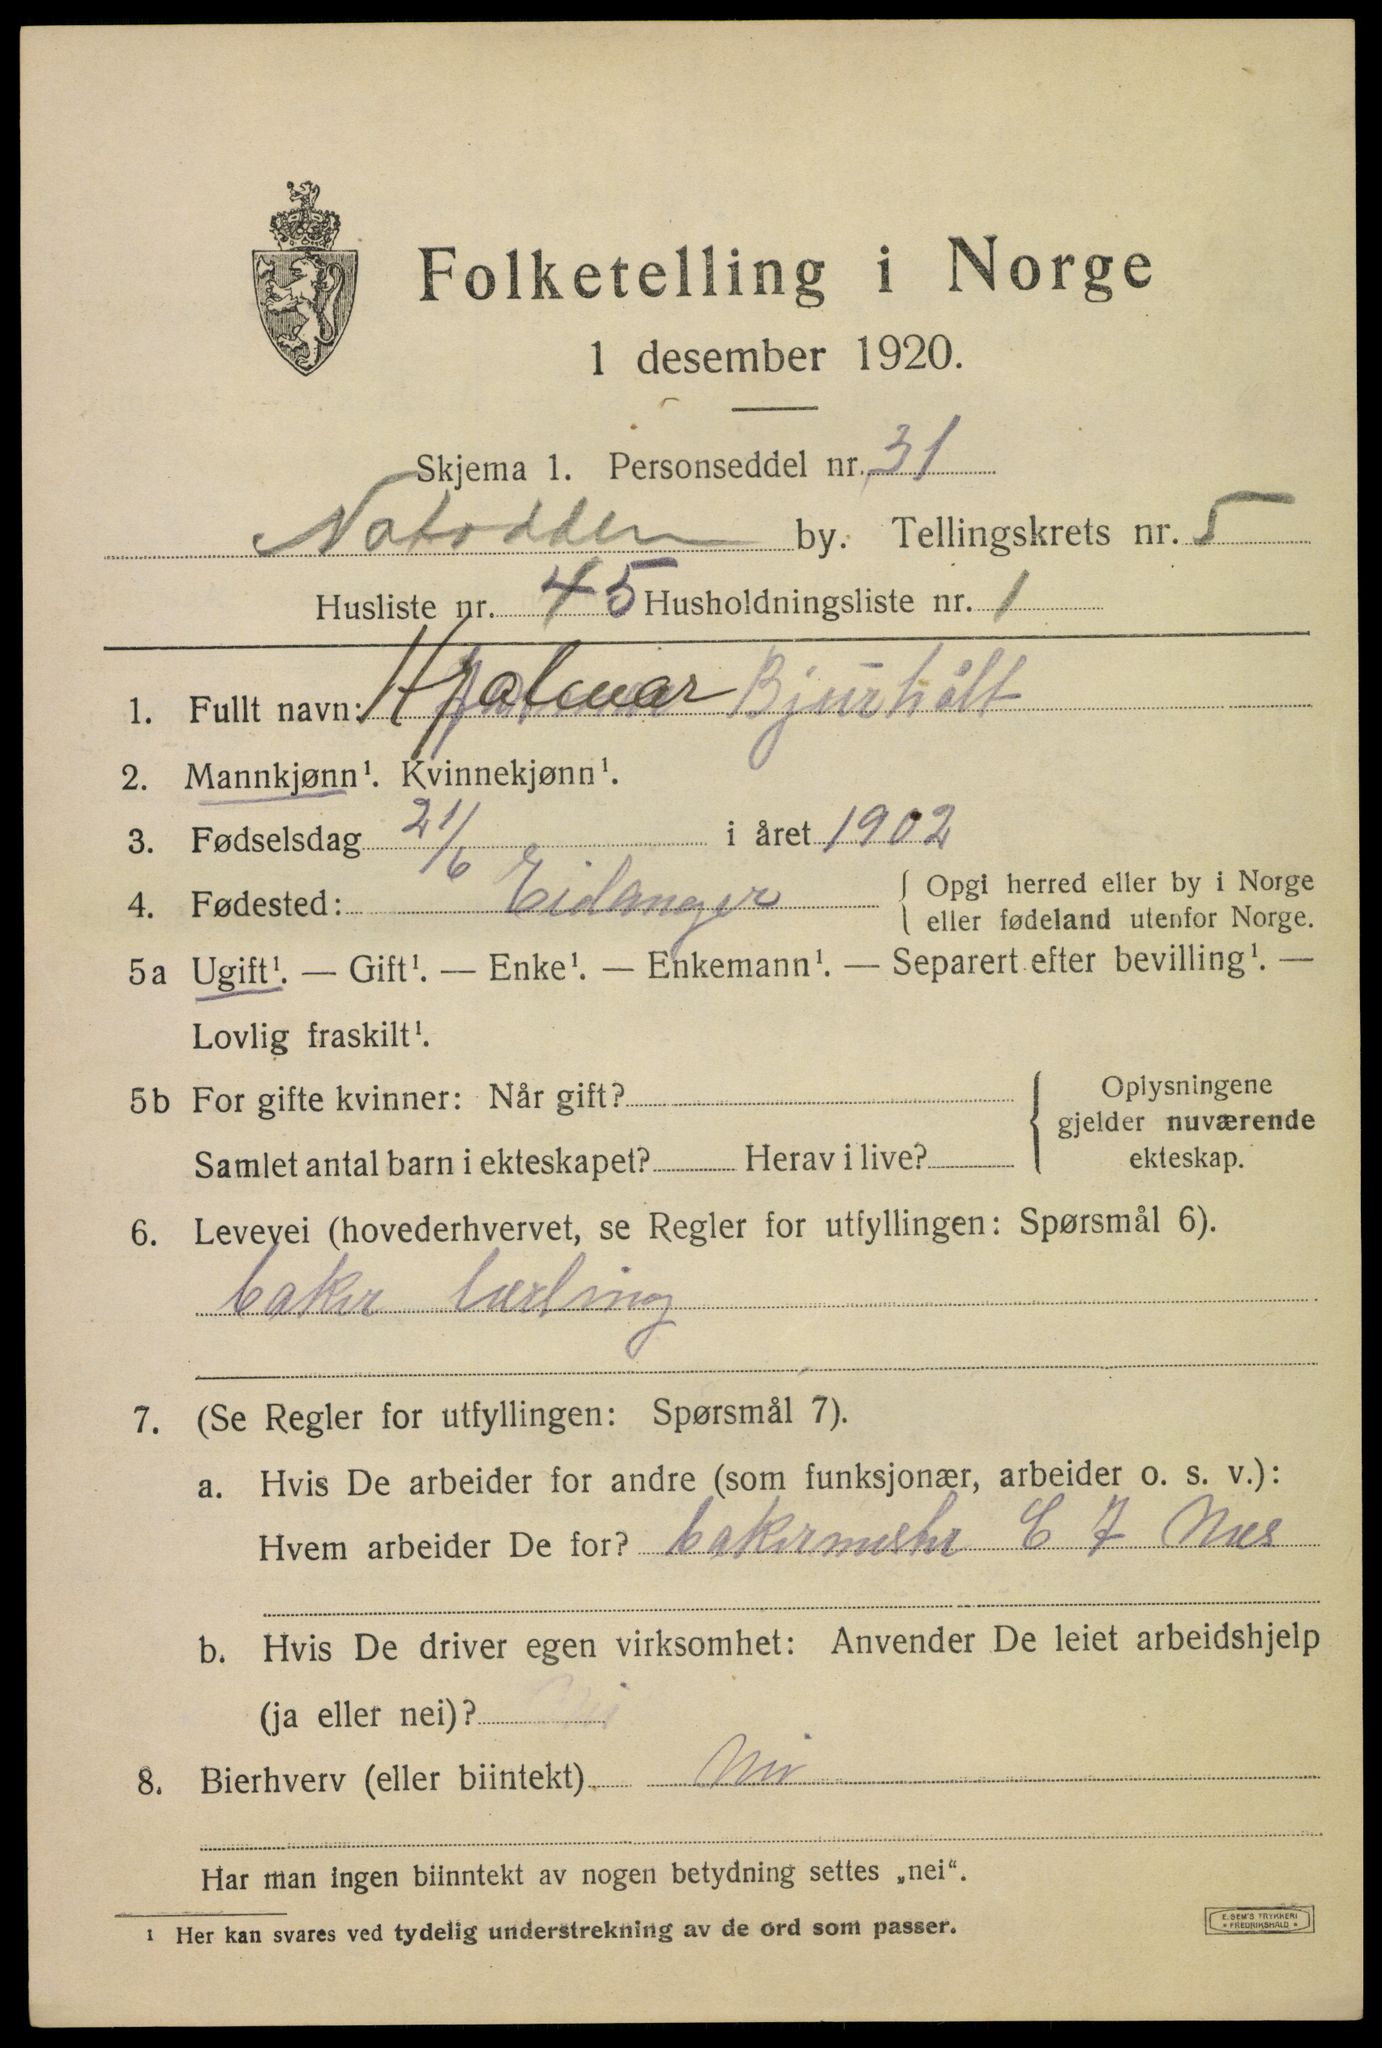 Folketelling i Norge
1 desember 1920.
Skjema 1. Personseddel nr. 31
Notodden by. Tellingskrets nr. 5
Husliste nr. 45 Husholdningsliste nr. 1
1. Fullt navn: Hjalmar Bjurholt
2. Mannkjønn¹. Kvinnekjønn¹.
3. Fødselsdag 21/6 i året 1902
4. Fødested: Eidanger { Opgi herred eller by i Norge
eller fødeland utenfor Norge.
5a Ugift¹. — Gift¹. — Enke¹. — Enkemann¹. — Separert efter bevilling¹. —
Lovlig fraskilt¹.
5b For gifte kvinner: Når gift? { Oplysningene
gjelder nuværende
Samlet antal barn i ekteskapet? Herav i live? ekteskap.
6. Levevei (hovederhvervet, se Regler for utfyllingen: Spørsmål 6).
baker lærling
7. (Se Regler for utfyllingen: Spørsmål 7).
a. Hvis De arbeider for andre (som funksjonær, arbeider o. s. v.):
Hvem arbeider De for? bakermester C F Næs
b. Hvis De driver egen virksomhet: Anvender De leiet arbeidshjelp
(ja eller nei)? Nei
8. Bierhverv (eller biintekt) Nei
Har man ingen biinntekt av nogen betydning settes „nei“.
¹ Her kan svares ved tydelig understrekning av de ord som passer.
E. SEM'S TRYKKERI
* FREDRIKSHALD *